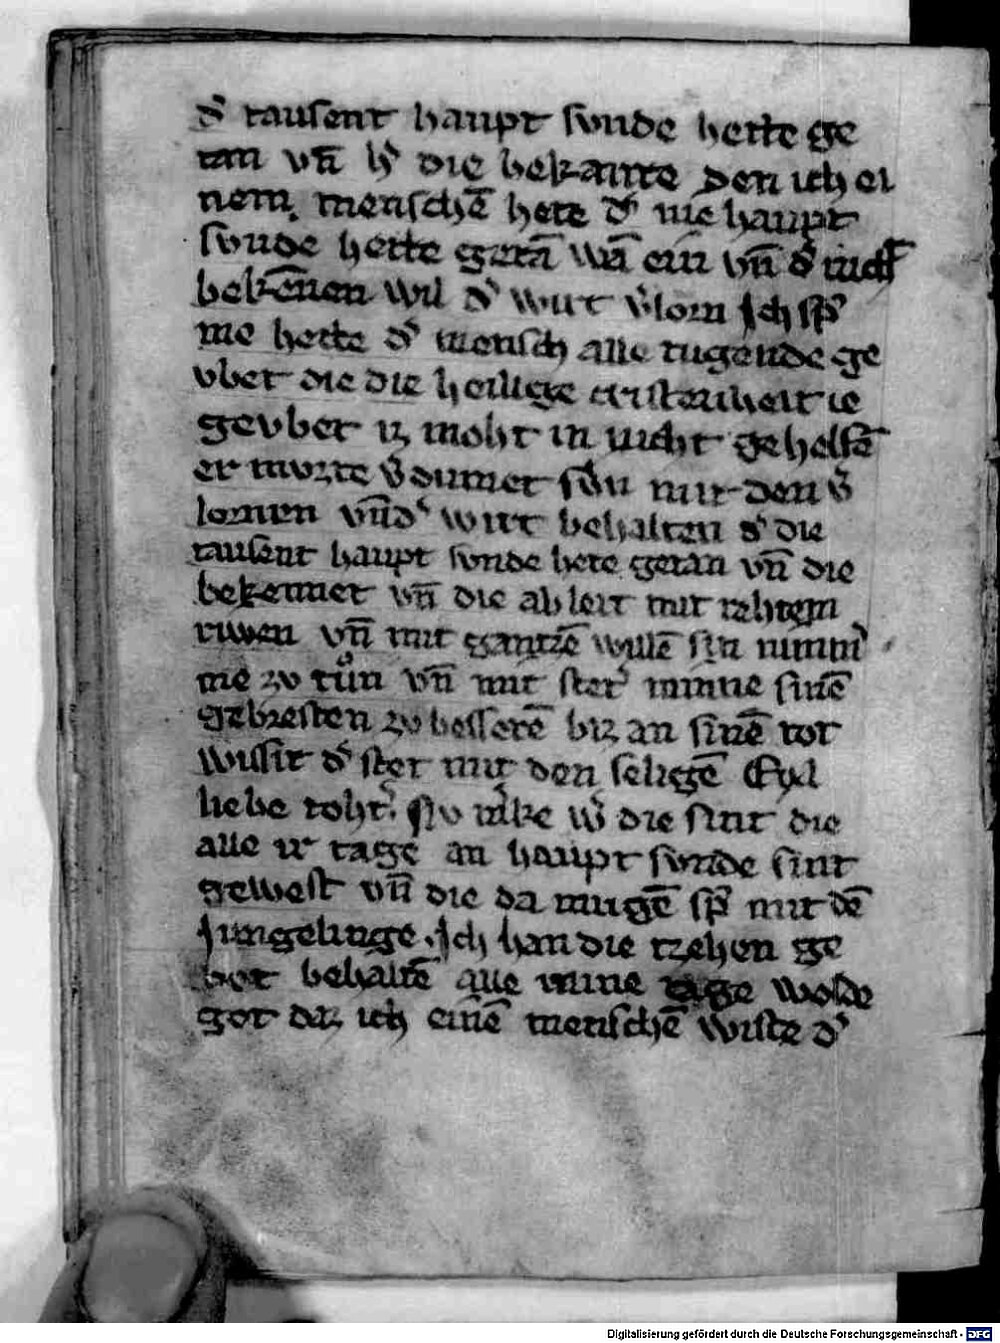 dˢ tausent haupt svnde hette ge
tan vn̄ hˢ die bekante den ich ei
nem menschē hete dˢ nie haupt
svnde hette getā wā ein vn̄ dˢ nicht
bekēnen wil dˢ wirt vˢlorn Ich spˢ
me hette dˢ mensch alle tugende ge
vbet die die heilige cristenheit ie
gevbet iz moht in nicht gehelfē
er mvzte vˢdumet sin mit den vˢ
lornen vn̄ dˢ wirt behalten dˢ die
tausent haupt svnde hete getan vn̄ die
bekennet vn̄ die ab leit mit rehtem
riwen vn̄ mit gantzē willē sin nimmˢ
me zv tůn vn̄ mit stetˢ minne sinē
gebresten zv besserē biz an sinē tot
wusit dˢ stet mit den seligē Eya
liebe tohtˢ Nv mˢke wˢ die sint die
alle ir tage an haupt svnde sint
gewest vn̄ die da mugē spˢ mit dē
Jungelinge Ich han die tzehen ge
bot behaltē alle mine tage wolde
got daz ich einē menschē wiste dˢ
Digitalisierung gefördert durch die Deutsche Forschungsgemeinschaft - DFG